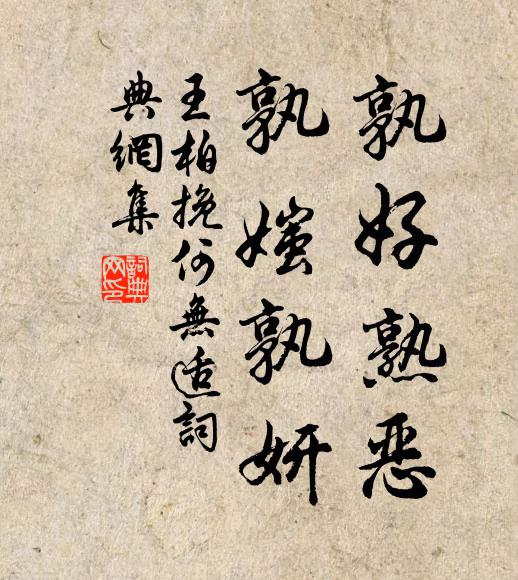 孰好熟恶
孰媸孰妍
王柏挽何無适詞
典網集
詞典
网印